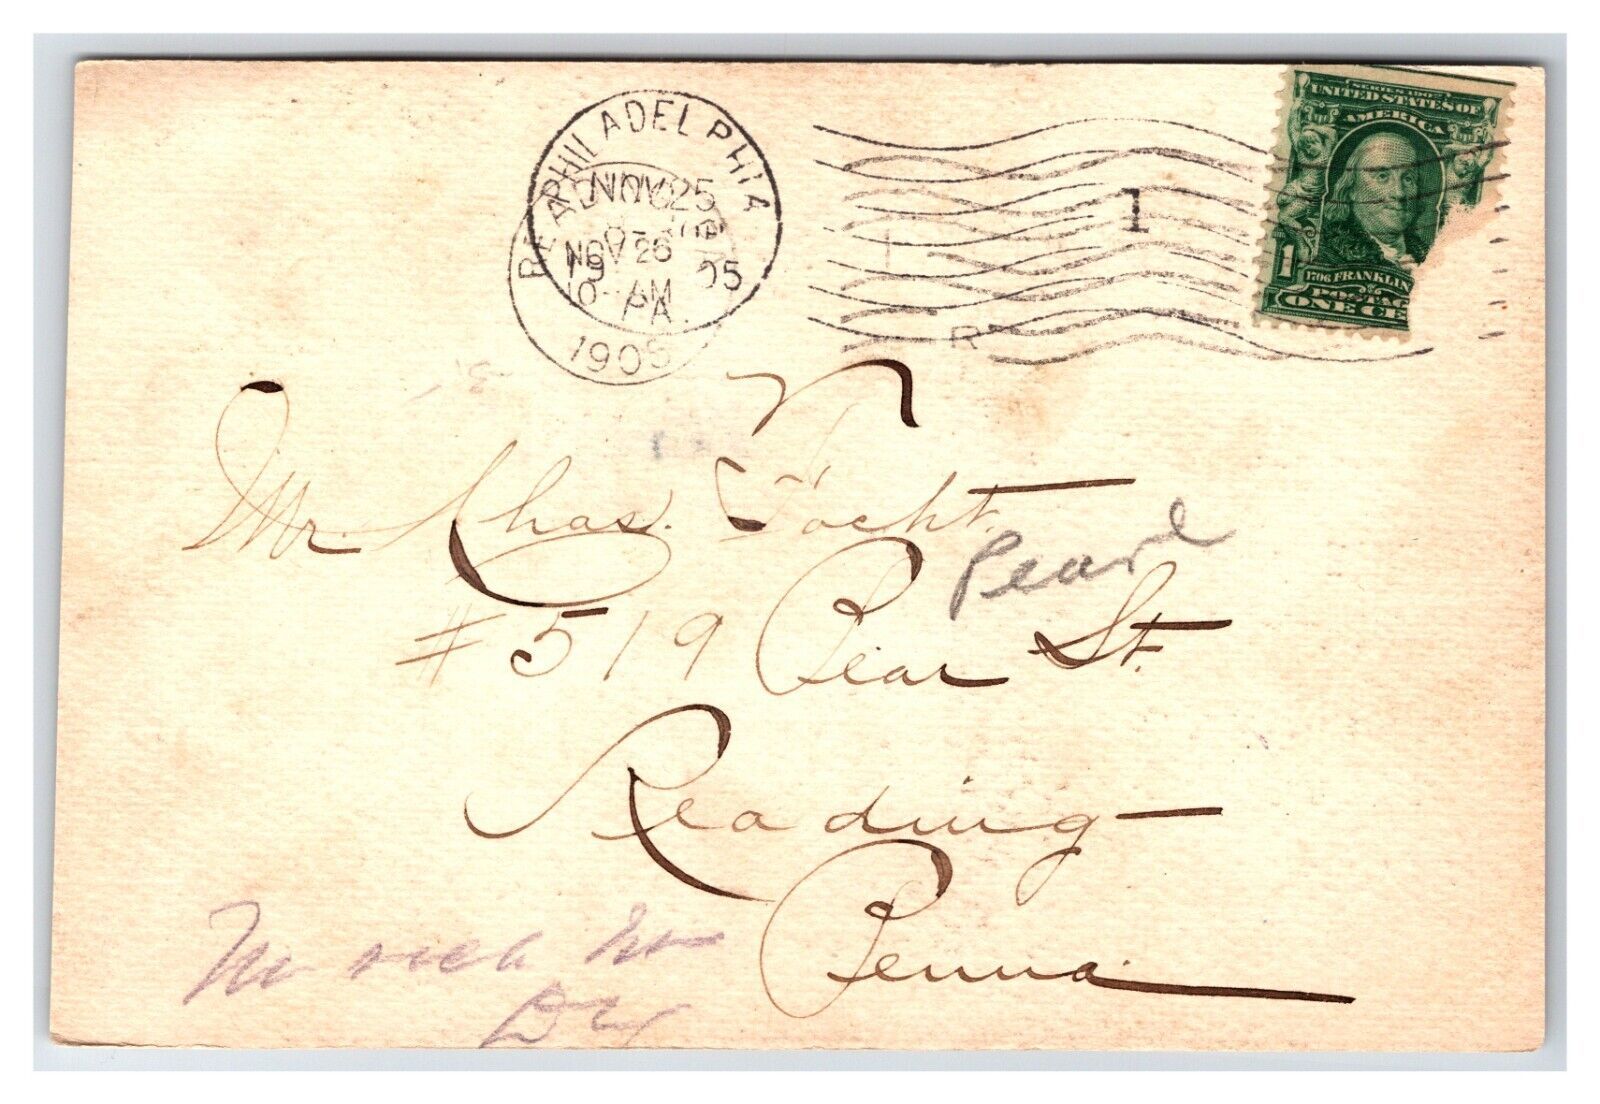 PHILADELPHIA
NOV 25
1905
PA.
READING
NOV 26
10-AM
1905
1
R
SERIES 1902
UNITED STATES OF
AMERICA
1
1706 FRANKLIN
POSTAG
ONE CE
Mr Chas. Yocht.
Pearl
# 519 Pear St.
Reading
Penna.
No such No